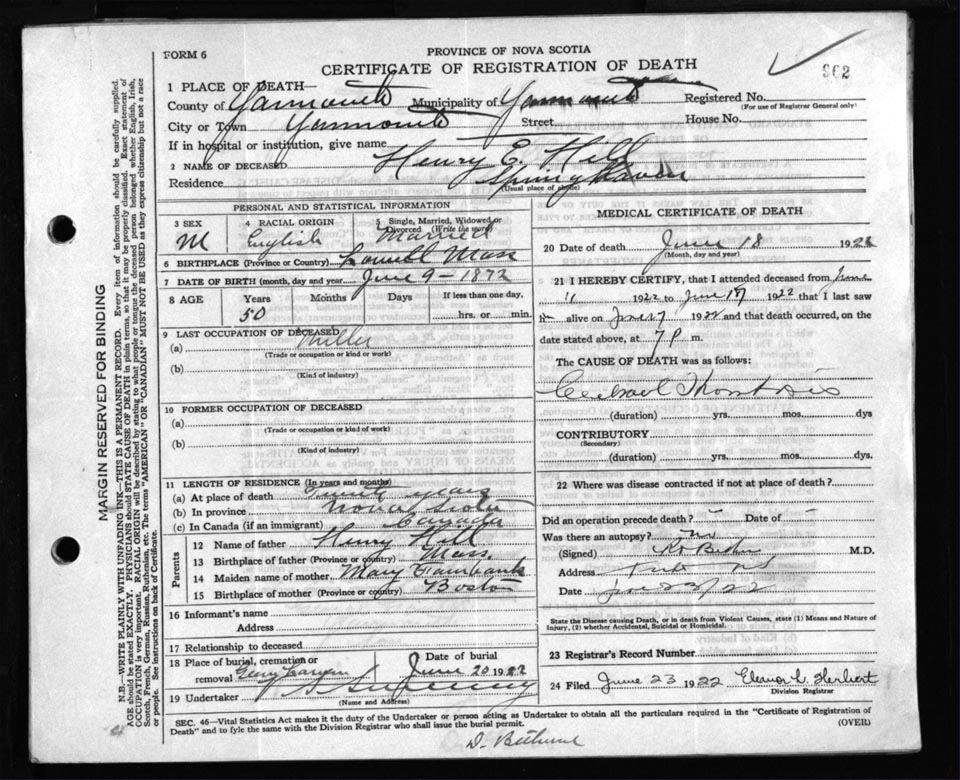 FORM 6
PROVINCE OF NOVA SCOTIA
CERTIFICATE OF REGISTRATION OF DEATH
962
1 PLACE OF DEATH—
County of Yarmouth Municipality of Yarmouth Registered No.
(For use of Registrar General only)
City or Town Yarmouth Street House No.
If in hospital or institution, give name
2 NAME OF DECEASED Henry E. Hill
Residence Springhaven
(Usual place of abode)
PERSONAL AND STATISTICAL INFORMATION
3 SEX M 4 RACIAL ORIGIN English 5 Single, Married, Widowed or Divorced (Write the word) Married
6 BIRTHPLACE (Province or Country) Lowell Mass
7 DATE OF BIRTH (month, day and year) June 9 - 1872
8 AGE Years 50 Months Days If less than one day, hrs. or min.
9 LAST OCCUPATION OF DECEASED
(a) Miller
(Trade or occupation or kind or work)
(b)
(Kind of industry)
10 FORMER OCCUPATION OF DECEASED
(a)
(Trade or occupation or kind of work)
(b)
(Kind of industry)
11 LENGTH OF RESIDENCE (In years and months)
(a) At place of death years
(b) In province Nova Scotia
(c) In Canada (if an immigrant) Canada
Parents
12 Name of father Henry Hill
13 Birthplace of father (Province or country) Mass.
14 Maiden name of mother Mary Fairbanks
15 Birthplace of mother (Province or country) Boston
16 Informant's name
Address
17 Relationship to deceased
18 Place of burial, cremation or removal Date of burial June 20 1922
19 Undertaker Sweeney
(Name and Address)
MEDICAL CERTIFICATE OF DEATH
20 Date of death June 18 1922
(Month, day and year)
21 I HEREBY CERTIFY, that I attended deceased from June
11 1922 to June 17 1922 that I last saw
h alive on June 17 1922 and that death occurred, on the
date stated above, at 7 P m.
The CAUSE OF DEATH was as follows:
Cerebral Thrombosis
(duration) yrs. mos. dys
CONTRIBUTORY
(Secondary)
(duration) yrs. mos. dys.
22 Where was disease contracted if not at place of death?
Did an operation precede death? Date of
Was there an autopsy? no
(Signed) M.D.
Address
Date June 23/22
State the Disease causing Death, or in death from Violent Causes, state (1) Means and Nature of
Injury, (2) whether Accidental, Suicidal or Homicidal.
23 Registrar's Record Number
24 Filed June 23 1922 Eleanor L. Herbert
Division Registrar
SEC. 46—Vital Statistics Act makes it the duty of the Undertaker or person acting as Undertaker to obtain all the particulars required in the "Certificate of Registration of
Death" and to fyle the same with the Division Registrar who shall issue the burial permit. (OVER)
D. Bethune
MARGIN RESERVED FOR BINDING
N.B.—WRITE PLAINLY WITH UNFADING INK—THIS IS A PERMANENT RECORD. Every item of information should be carefully supplied.
AGE should be stated EXACTLY. PHYSICIANS should STATE CAUSE OF DEATH in plain terms, so that it may be properly classified. Exact statement of
OCCUPATION is very important. RACIAL ORIGIN will be described by stating to what people or tongue the deceased person belonged whether English, Irish,
Scotch, French, German, Russian, Ruthenian, etc. The terms "AMERICAN" OR "CANADIAN" MUST NOT BE USED as they express citizenship but not a race
or people. See instructions on back of Certificate.